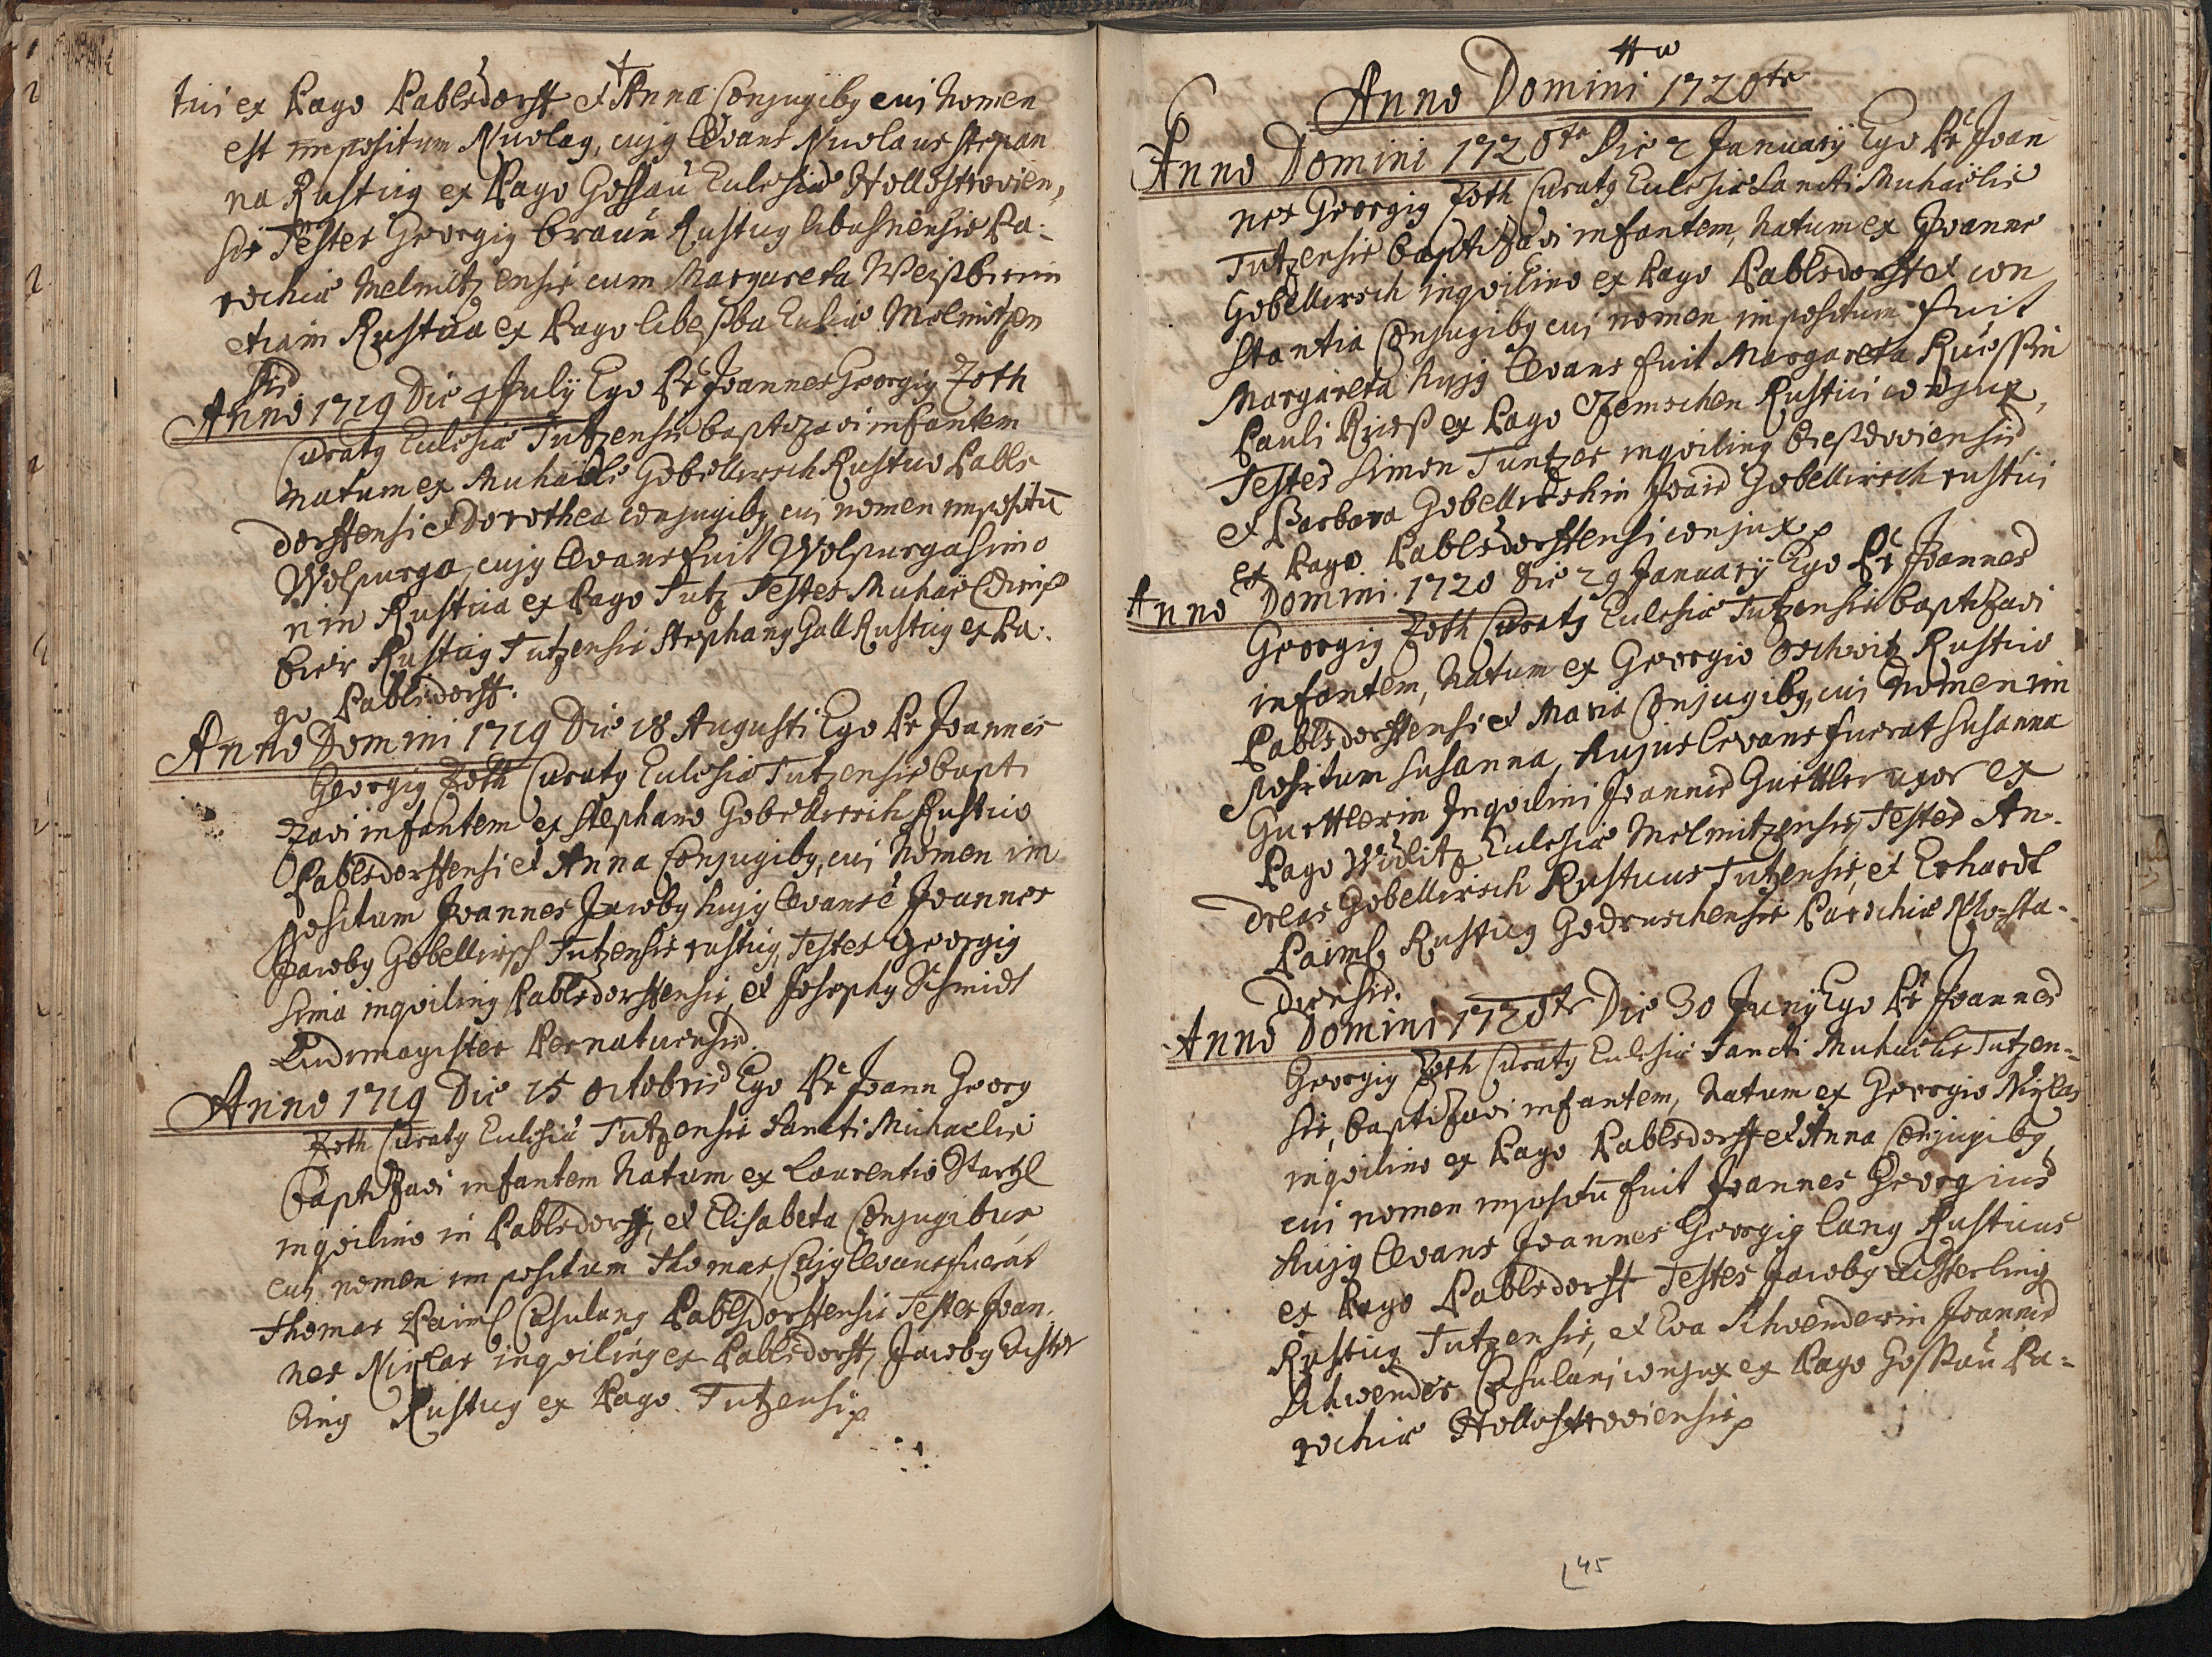 tici ex Pago Pablsdorff et Anna Conjugibg cui Nomen
est impositum Nicolag, cujg Levans Nicolaus Stepan
na Rusticg ex Pago Gossaŭ Eclesiae Hollostrovien,
sis Testes Georgig Braŭn Rusticg Pa:
rochiae Melmitzensis cum Margareta Weissbierin
etiam Rustica ex Pago Melmitzen
sis
Anno 1719 Die 4 July Ego Pr Joannes Georgig Zoth
Curatg Eclesiae Tutzensis baptizavi infantem
natum ex Michaële Gobellirsch Rustico Pabls
dorffensi et Dorothea conjugibg cui nomen impositū
Wolpurga, cujg Levans fuit Wolpurga Simo
nin Rustica ex Pago Tutz Testes Michaël
bier Rusticg Tutzensis Stephang Gall Rusticg ex Pa:
go Pablsdorff.
Anno Domini 1719 Die 18 Augusti Ego Pr Joannes
Georgig Zoth Curatg Eclesiae Tutzensis bapti
zavi infantem ex Stephano Gobellirsch Rustico
Pablsdorffensi et Anna Conjugibg, cui Nomen im
positum Joannes Jacobg hujg Levans ē Joannes
Jacobg Gobellirsch Tutzensis rusticg, Testes Georgig
Sima inqviling Pablsdorffensis, et Josephg Schmidt
Ludimagister Pernaticensis.
Anno 1719 Die 15 Octobris Ego Pr Joann Georg
Zoth Curatg Eclesiae Tutzensis Sancti Michaelis
baptizavi infantem Natum ex Laurentio Startzl
inqvilino in Pablsdorff, et Elisabeta Conjugibus,
cui nomen impositum Thomas, Cujg Levans fuerat
Thomas Paiml Casulang Pablsdorffensis Testes Joan:
nes Nixlas inqviling ex Pablsdorff, Jacobg Echster
ling Rusticg ex Pago Tutzensi
Anno Domini 1720te
Anno Domini 1720te Die 2 January Ego Pr Joan
nes Georgig Zoth Curatg Eclesiae Sancti Michaëlis
Tutzensis baptizavi infantem, Natum ex Joanne
Gobellirsch inqvilino ex Pago Pablsdorff et Con
stantia Conjugibg cui nomen impositum fuit
Margareta hujg Levans fuit Margareta Rücssin
Pauli Rücss ex Pago Rustici conjux,
Testes Simon Tuntzer inqviling
et Barbara Gobellirschin Joais Gobellirsch rustici
ex Pago Pablsdorffensi conjux
Anno Domini 1720 Die 29 January Ego Pr Joannes
Georgig Zoth Curatg Eclesiae Tutzensis baptizavi
infantem, Natum ex Georgio Oschwitz Rustico
Pablsdorffensi et Maria Conjugibg, cui Nomen im
positum Susanna, hujus Levans fuerat Susanna
Guettlerin Inqvilini Joannis Guettler uxor ex
Pago Widlitz Eclesiae Melmitzensis, Testes An:
dreas Gobellirsch Rusticus Tutzensis, et Erhardt
Paiml Rusticg Godruschensis Parochiae Mosta:
Anno Domini 1720te Die 30 Juny Ego Pr Joannes
Georgig Zoth Curatg Eclesiae Sancti Michaelis Tutzen=
sis, baptizavi infantem, Natum ex Georgio Nixlas
inqvilino ex Pago Pablsdorff et Anna Conjugibg
cui nomen impositū fuit Joannes Georgius
hujg Levans Joannes Georgig Lang Rusticus
ex Pago Pablsdorff Testes Jacobg Echsterling
Rusticg Tutzensis, et Eva Schwenderin Joannis
Schwender Casulani conjux ex Pago Gossaŭ Pa=
rochiae Hollostroviensis
45